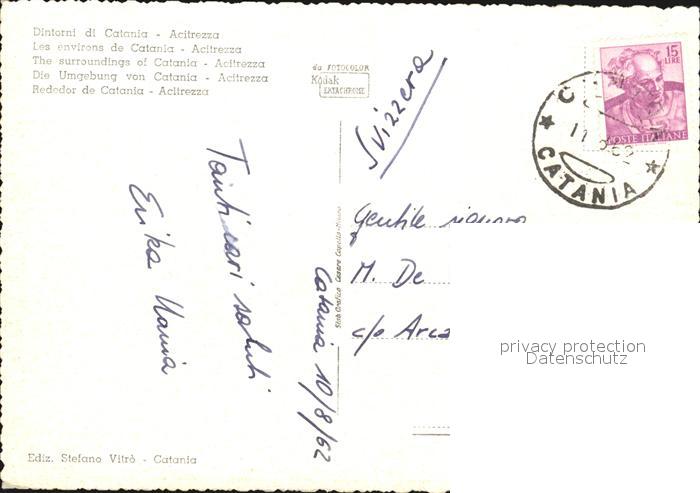 Dintorni di Catania - Acitrezza
Les environs de Catania - Acitrezza
The surroundings of Catania - Acitrezza
Die Umgebung von Catania - Acitrezza
Rededor de Catania - Acitrezza
da FOTOCOLOR
Kodak
EKTACHROME
Svizzera
15
LIRE
POSTE ITALIANE
CATANIA
Tanti cari saluti
Erika
Catania 10/8/62
Stab. Grafico Cesare Capello - Milano
Gentile signora
M. De
c/o Arca
privacy protection
Datenschutz
Ediz. Stefano Vitrò - Catania